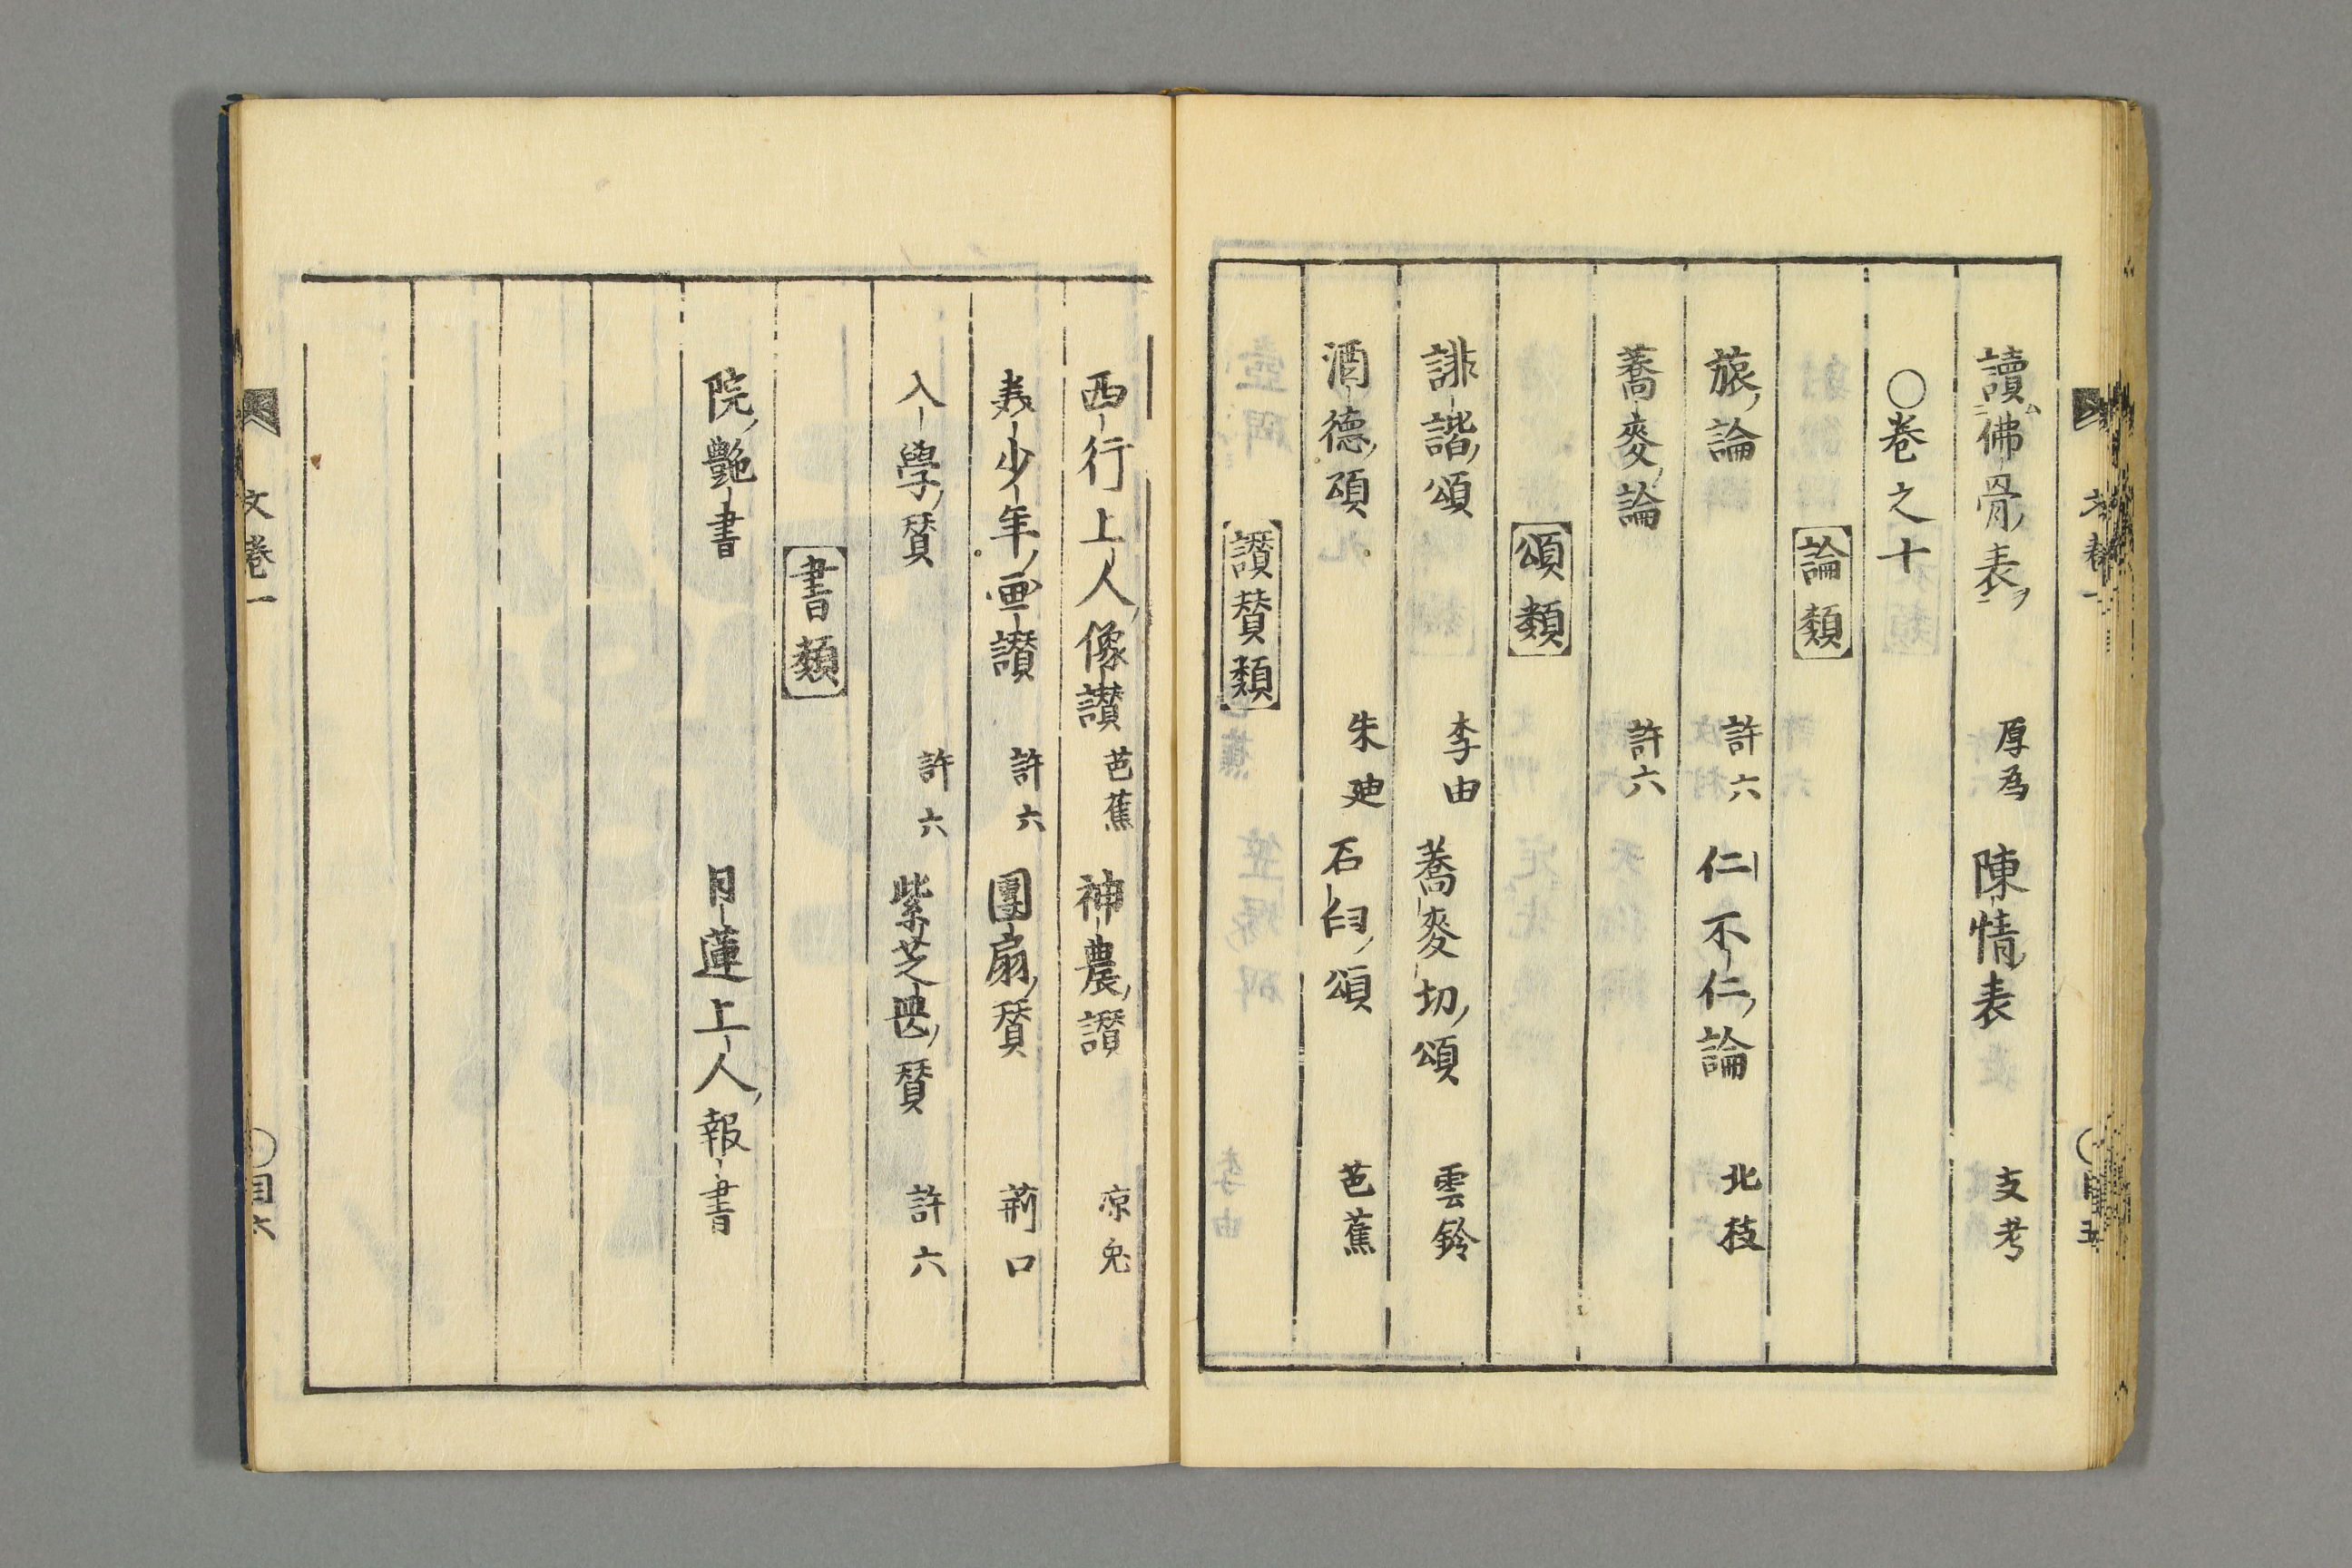 讀佛骨表 厚為 陳情表 支考
○巻之十
論類
旅論 許六 仁不仁論 北枝
蕎麥論 許六
頌類
誹諧頌 李由 蕎麥切頌 雲鈴
酒德頌 朱廸 石臼頌 芭蕉
讃賛類
西行上人像讃 芭蕉 神農讃 凉兔
美少年画讃 許六 團扇賛 荊口
入學賛 許六 紫芝岊賛 許六
書類
院艶書 月蓮上人報書
文巻一
目六